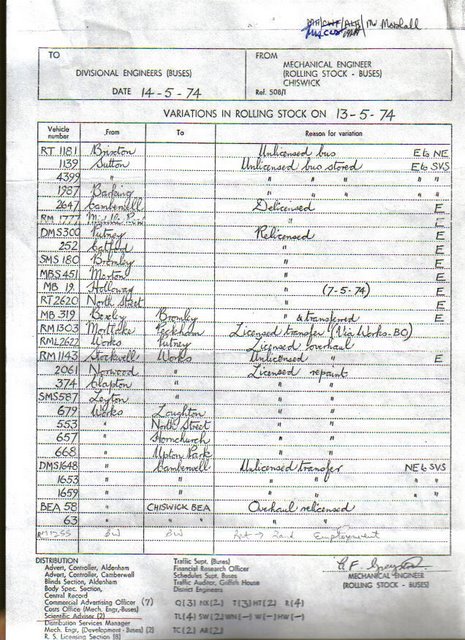 BM/CWF/ALB/Mr Marshall
TO
DIVISIONAL ENGINEERS (BUSES)
DATE 14-5-74
FROM
MECHANICAL ENGINEER
(ROLLING STOCK - BUSES)
CHISWICK
Ref. 508/1
VARIATIONS IN ROLLING STOCK ON 13-5-74
Vehicle number From To Reason for variation
RT 1181 Brixton Unlicensed bus E to NE
1139 Sutton Unlicensed bus stored E to SVS
4399 " " " " " "
1987 Barking " " " " "
2647 Camberwell Delicensed E
RM 1777 Middle Row " E
DMS300 Putney Relicensed E
252 Catford " E
SMS 180 Bromley " E
MBS451 Merton " E
MB 19 Holloway " (7-5-74) E
RT2620 North Street " E
MB 319 Bexley Bromley " & transferred E
RM1303 Mortlake Peckham Licensed transfer (Via Works. BO)
RML2622 Works Putney Licensed overhaul
RM1143 Stockwell Works Unlicensed " E
2061 Norwood " Licensed repaint
374 Clapton " " "
SMS587 Leyton " " "
679 Works Loughton " "
553 " North Street " "
657 " Hornchurch " "
668 " Upton Park " "
DMS1648 " Camberwell Unlicensed transfer NE to SVS
1653 " " " " "
1659 " " " " "
BEA 58 " CHISWICK BEA Overhaul relicensed
63 " " " " "
RM1255 BW BW 1st → 2nd Employment
DISTRIBUTION
Advert, Controller, Aldenham
Advert, Controller, Camberwell
Blinds Section, Aldenham
Body Spec, Section,
Central Record
Commercial Advertising Officer (7)
Costs Office (Mech. Engr.-Buses)
Scientific Adviser (2)
Distribution Services Manager
Mech. Engr. (Development - Buses) (2)
R. S. Licensing Section (8)
Traffic Supt. (Buses)
Financial Research Officer
Schedules Supt. Buses
Traffic Auditor, Griffith House
District Engineers
Q(3) NX(2) T(3) HT(2) R(4)
TL(4) SW(2) WN(-) W(-) HW(-)
TC(2) AR(2)
MECHANICAL ENGINEER
(ROLLING STOCK - BUSES)